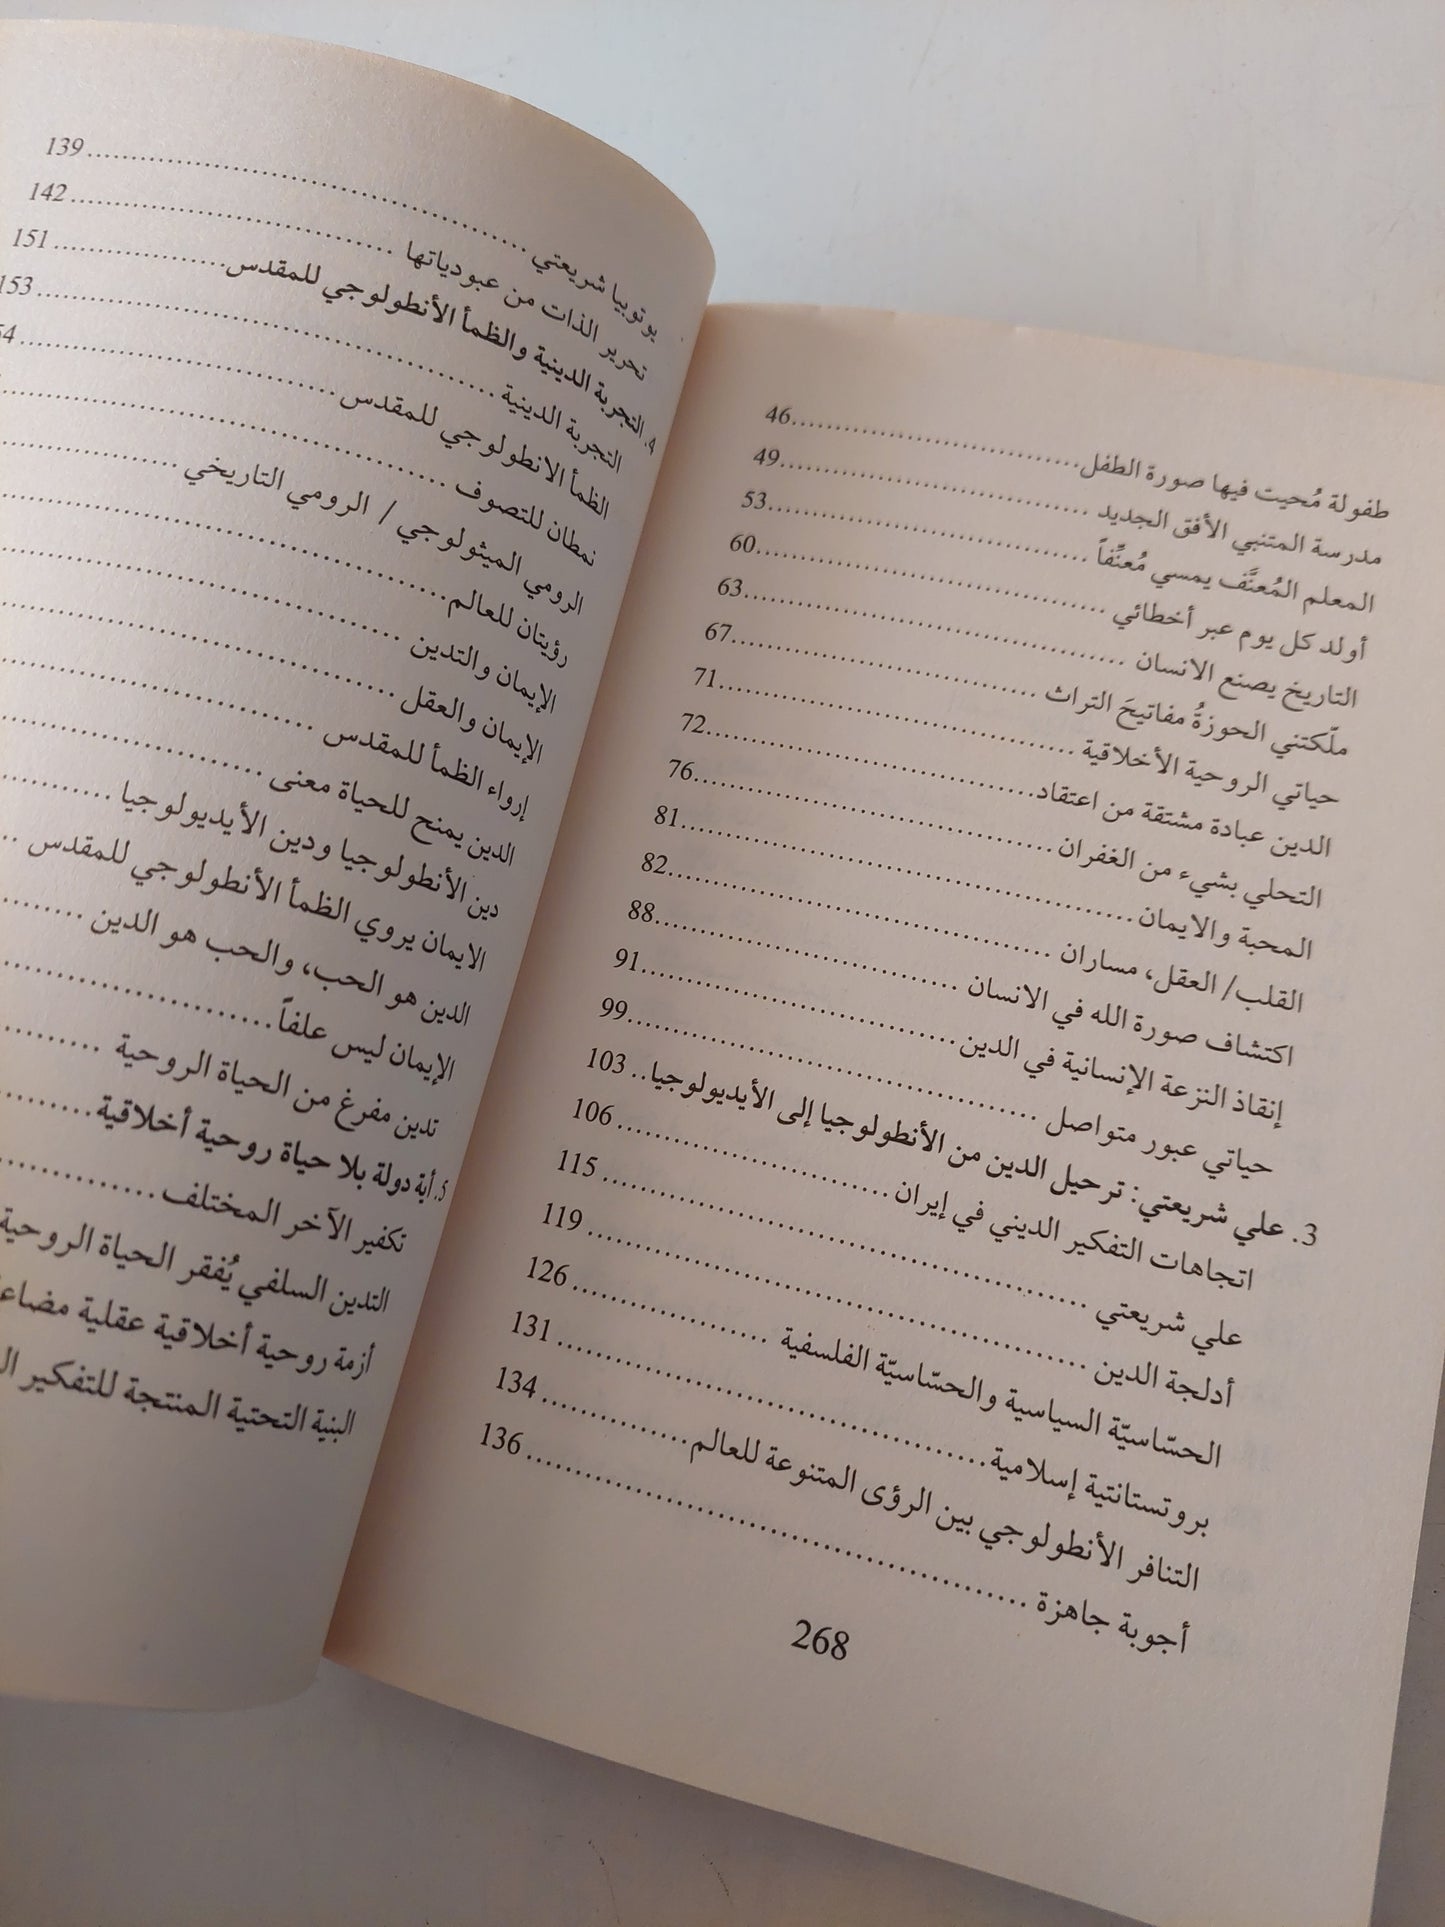 طفولة مُحيت فيها صورة الطفل ............................ 46
مدرسة المتنبي الأفق الجديد ............................ 49
المعلم المُعنَّف يمسي مُعنِّفاً ............................ 53
أولد كل يوم عبر أخطائي ............................ 60
التاريخ يصنع الانسان ............................ 63
ملّكتني الحوزةُ مفاتيحَ التراث ............................ 67
حياتي الروحية الأخلاقية ............................ 71
الدين عبادة مشتقة من اعتقاد ............................ 72
التحلي بشيء من الغفران ............................ 76
المحبة والايمان ............................ 81
القلب/ العقل، مساران ............................ 82
اكتشاف صورة الله في الانسان ............................ 88
إنقاذ النزعة الإنسانية في الدين ............................ 91
حياتي عبور متواصل ............................ 99
3. علي شريعتي: ترحيل الدين من الأنطولوجيا إلى الأيديولوجيا.. 103
اتجاهات التفكير الديني في إيران ............................ 106
علي شريعتي ............................ 115
أدلجة الدين ............................ 119
الحسّاسيّة السياسية والحسّاسيّة الفلسفية ............................ 126
بروتستانتية إسلامية ............................ 131
التنافر الأنطولوجي بين الرؤى المتنوعة للعالم ............................ 134
أجوبة جاهزة ............................ 136
268
يوتوبيا شريعتي ............................ 139
تحرير الذات من عبودياتها ............................ 142
4. التجربة الدينية والظمأ الأنطولوجي للمقدس ............................ 151
التجربة الدينية ............................ 153
الظمأ الانطولوجي للمقدس ............................
نمطان للتصوف ............................
الرومي الميثولوجي / الرومي التاريخي ............................
رؤيتان للعالم ............................
الإيمان والتدين ............................
الإيمان والعقل ............................
إرواء الظمأ للمقدس ............................
الدين يمنح للحياة معنى ............................
دين الأنطولوجيا ودين الأيديولوجيا ............................
الايمان يروي الظمأ الأنطولوجي للمقدس ..
الدين هو الحب، والحب هو الدين ............................
الإيمان ليس علفاً ............................
تدين مفرغ من الحياة الروحية ............................
5. أية دولة بلا حياة روحية أخلاقية ............................
تكفير الآخر المختلف ............................
التدين السلفي يُفقر الحياة الروحية
أزمة روحية أخلاقية عقلية
البنية التحتية المنتجة للتفكير